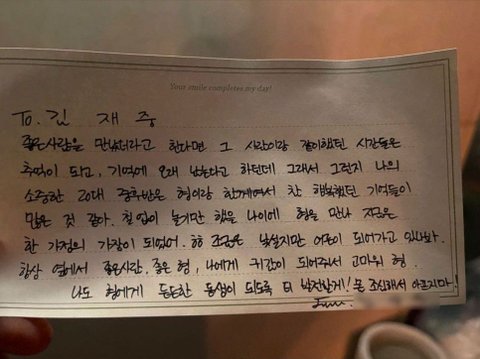 Your smile completes my day!
To. 김 재 중
좋은사람을 만났더라고 한다면 그 사람이랑 같이했던 시간들은
추억이 되고, 기억에 오래 남는다고 하던데 그래서 그런지 나의
소중한 20대 중후반은 형이랑 함께여서 참 행복했던 기억들이
많은 것 같아. 철없이 놀기만 했을 나이에 형을 만나 지금은
한 가정의 가장이 되었어. ㅎㅎ 조금은 낯설지만 어른이 되어가고 있나봐.
항상 옆에서 좋은시간, 좋은 형, 나에게 귀감이 되어주서 고마워 형.
나도 형에게 든든한 동생이 되도록 더 발전할게! 몸 조심해서 아프지마!